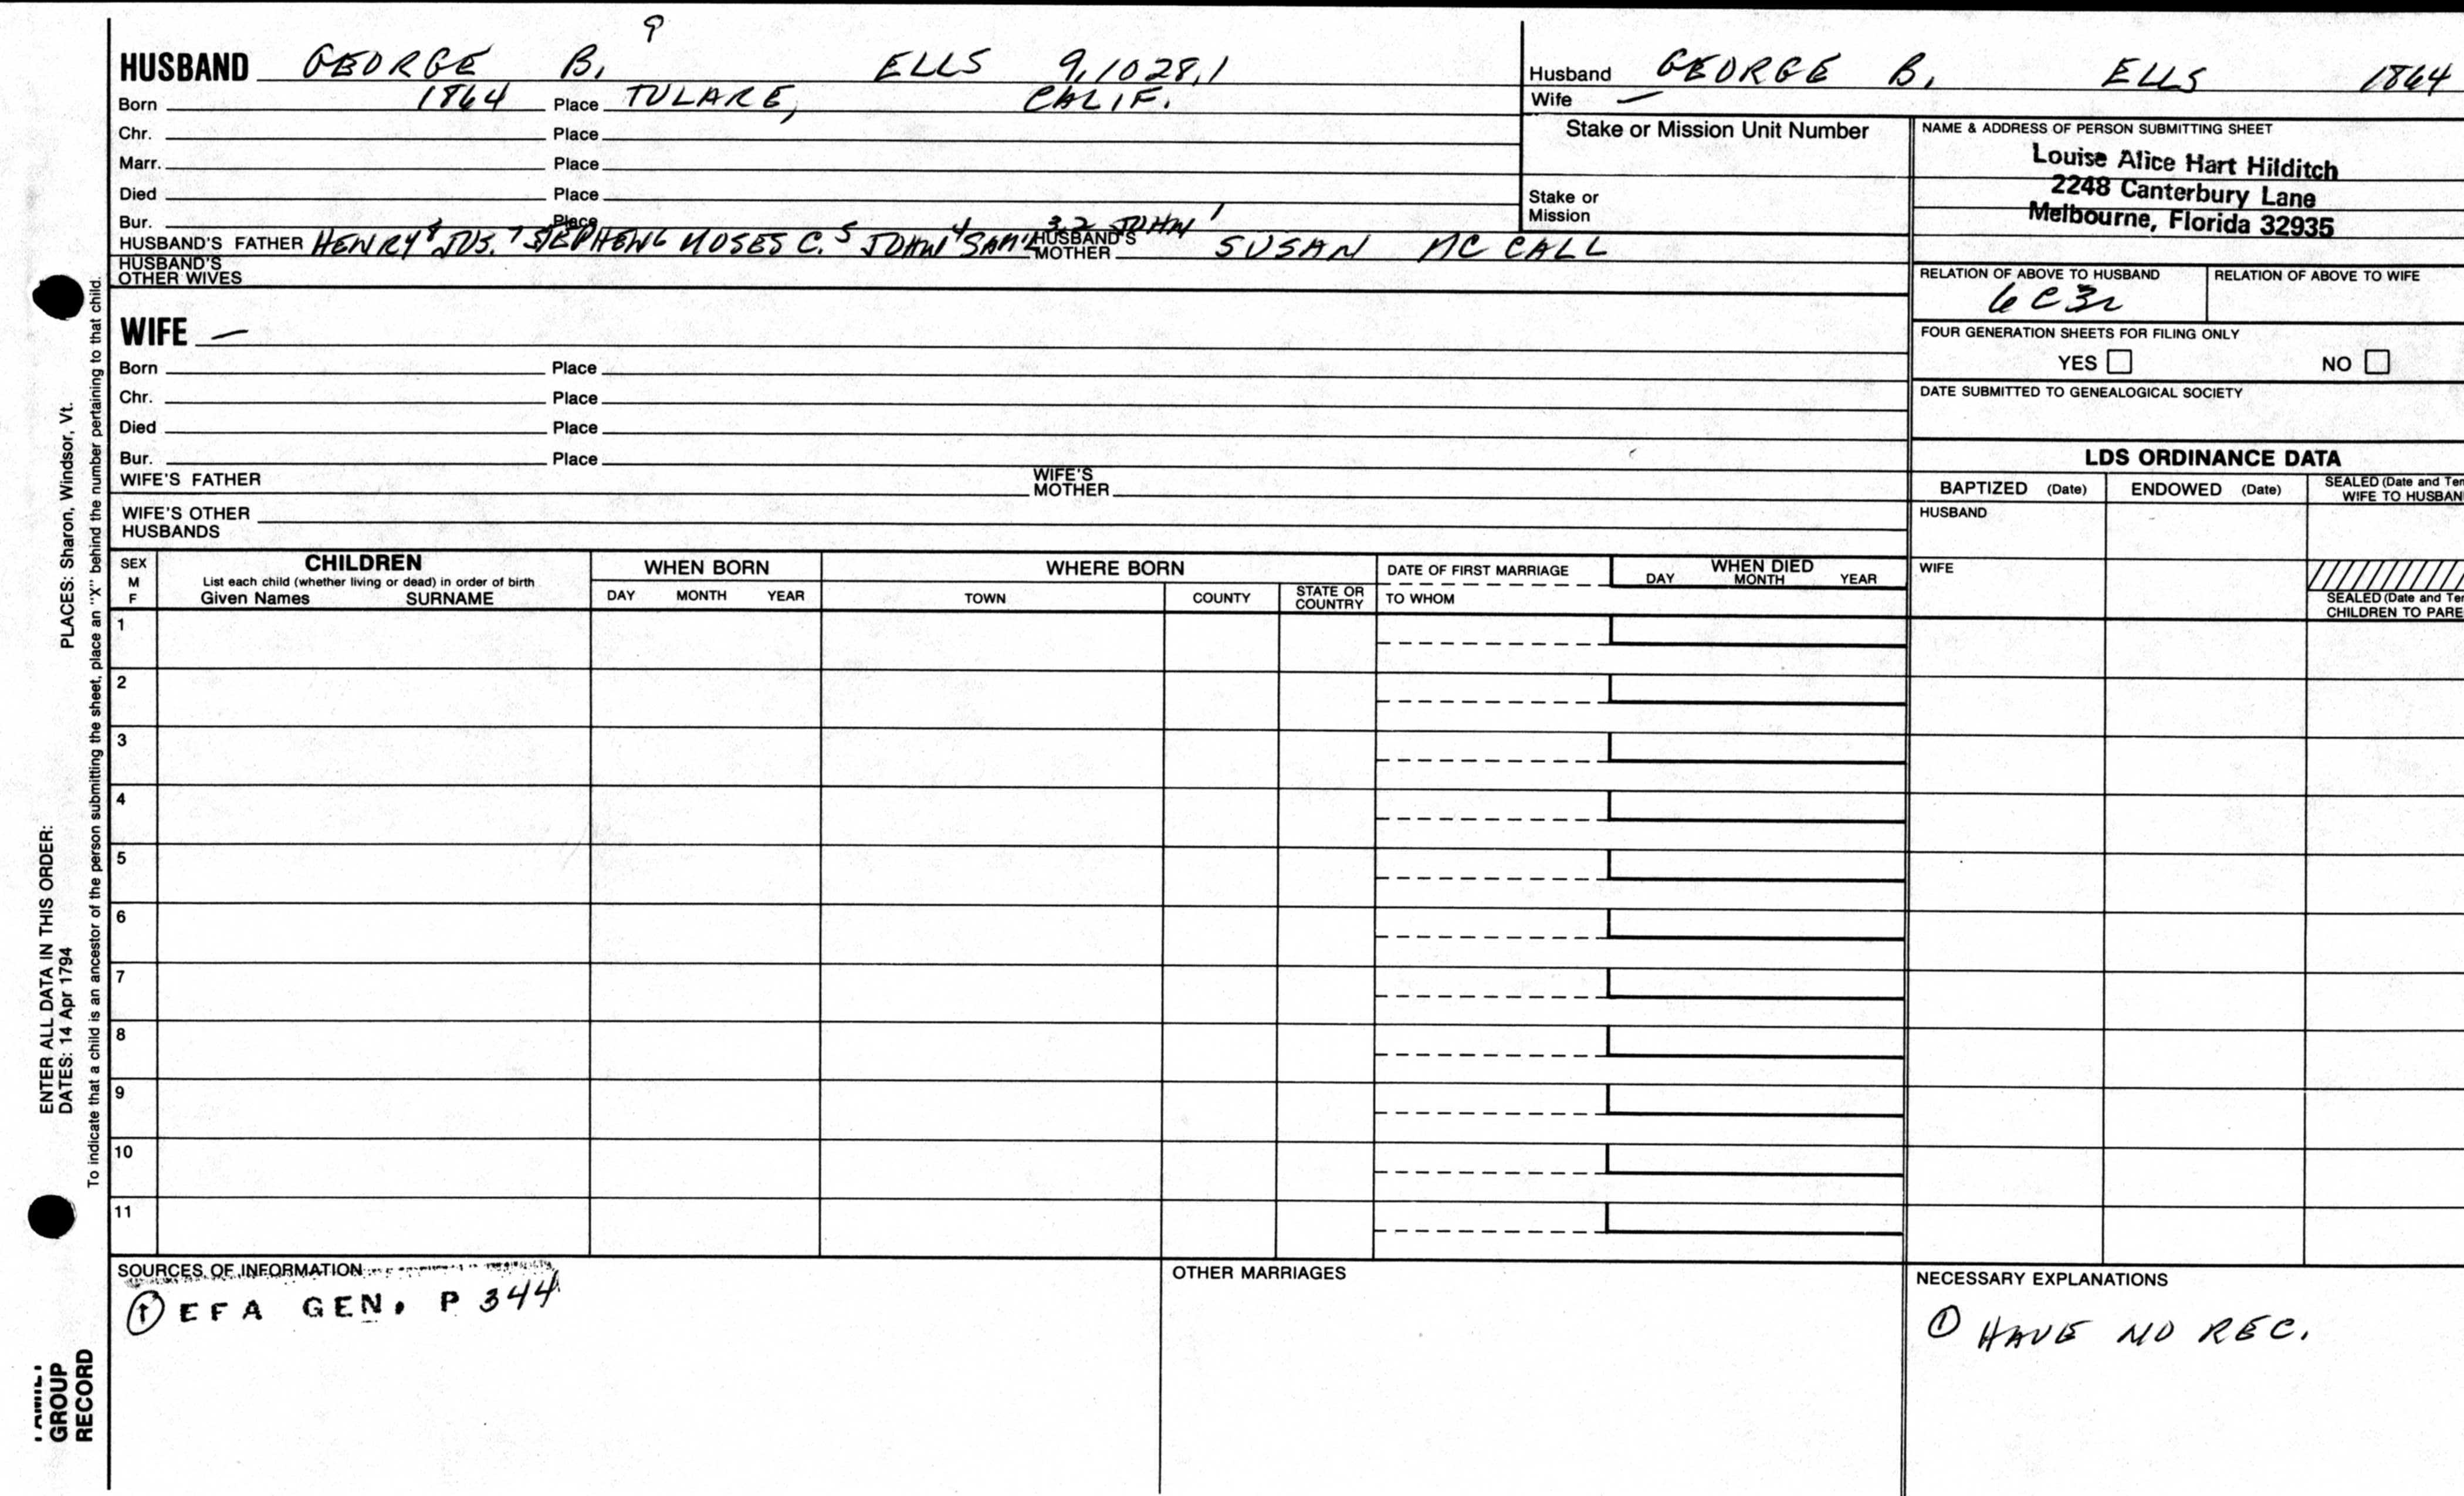 9
HUSBAND GEORGE B. ELLS 9.1028.1
Born 1864 Place TULARE, CALIF.
Chr. Place
Marr. Place
Died Place
Bur. Place
HUSBAND'S FATHER HENRY 8 JOS. 7 STEPHEN 6 MOSES C. 5 JOHN 4 SAM'L 3 2 JOHN 1 HUSBAND'S MOTHER SUSAN MC CALL
HUSBAND'S OTHER WIVES
WIFE —
Born Place
Chr. Place
Died Place
Bur. Place
WIFE'S FATHER WIFE'S MOTHER
WIFE'S OTHER HUSBANDS
Husband GEORGE B. ELLS 1864
Wife —
Stake or Mission Unit Number
Stake or Mission
NAME & ADDRESS OF PERSON SUBMITTING SHEET
Louise Alice Hart Hilditch
2248 Canterbury Lane
Melbourne, Florida 32935
RELATION OF ABOVE TO HUSBAND RELATION OF ABOVE TO WIFE
6C3R
FOUR GENERATION SHEETS FOR FILING ONLY
YES NO
DATE SUBMITTED TO GENEALOGICAL SOCIETY
LDS ORDINANCE DATA
BAPTIZED (Date) ENDOWED (Date) SEALED (Date and Tem
WIFE TO HUSBAN
HUSBAND
WIFE
SEALED (Date and Tem
CHILDREN TO PARE
SEX M F CHILDREN WHEN BORN WHERE BORN DATE OF FIRST MARRIAGE WHEN DIED
List each child (whether living or dead) in order of birth
Given Names SURNAME DAY MONTH YEAR TOWN COUNTY STATE OR COUNTRY TO WHOM DAY MONTH YEAR
1
2
3
4
5
6
7
8
9
10
11
SOURCES OF INFORMATION
① EFA GEN. P 344
OTHER MARRIAGES
NECESSARY EXPLANATIONS
① HAVE NO REC.
PLACES: Sharon, Windsor, Vt.
ENTER ALL DATA IN THIS ORDER:
DATES: 14 Apr 1794
To indicate that a child is an ancestor of the person submitting the sheet, place an "X" behind the number pertaining to that child.
FAMILY
GROUP
RECORD